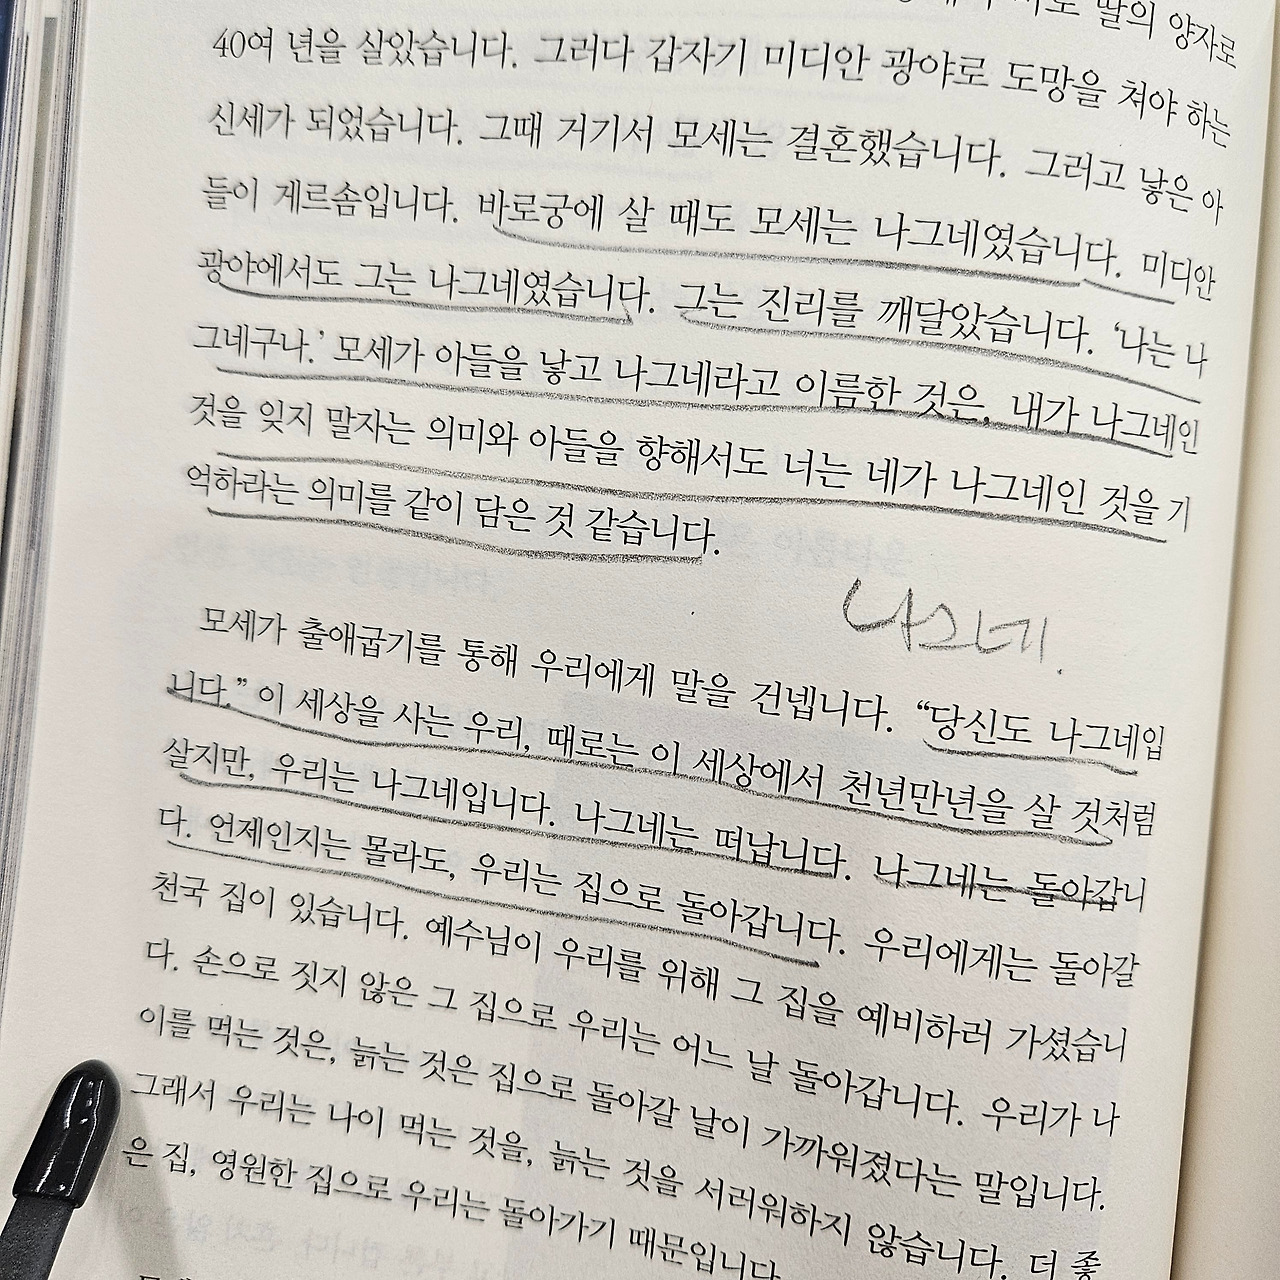 딸의 양자로
40여 년을 살았습니다. 그러다 갑자기 미디안 광야로 도망을 쳐야 하는
신세가 되었습니다. 그때 거기서 모세는 결혼했습니다. 그러고 낳은 아
들이 게르솜입니다. 바로궁에 살 때도 모세는 나그네였습니다. 미디안
광야에서도 그는 나그네였습니다. 그는 진리를 깨달았습니다. ‘나는 나
그네구나.’ 모세가 아들을 낳고 나그네라고 이름한 것은, 내가 나그네인
것을 잊지 말자는 의미와 아들을 향해서도 너는 네가 나그네인 것을 기
억하라는 의미를 같이 담은 것 같습니다.
나그네.
모세가 출애굽기를 통해 우리에게 말을 건넵니다. “당신도 나그네입
니다.” 이 세상을 사는 우리, 때로는 이 세상에서 천년만년을 살 것처럼
살지만, 우리는 나그네입니다. 나그네는 떠납니다. 나그네는 돌아갑니
다. 언제인지는 몰라도, 우리는 집으로 돌아갑니다. 우리에게는 돌아갈
천국 집이 있습니다. 예수님이 우리를 위해 그 집을 예비하러 가셨습니
다. 손으로 짓지 않은 그 집으로 우리는 어느 날 돌아갑니다. 우리가 나
이를 먹는 것은, 늙는 것은 집으로 돌아갈 날이 가까워졌다는 말입니다.
그래서 우리는 나이 먹는 것을, 늙는 것을 서러워하지 않습니다. 더 좋
은 집, 영원한 집으로 우리는 돌아가기 때문입니다